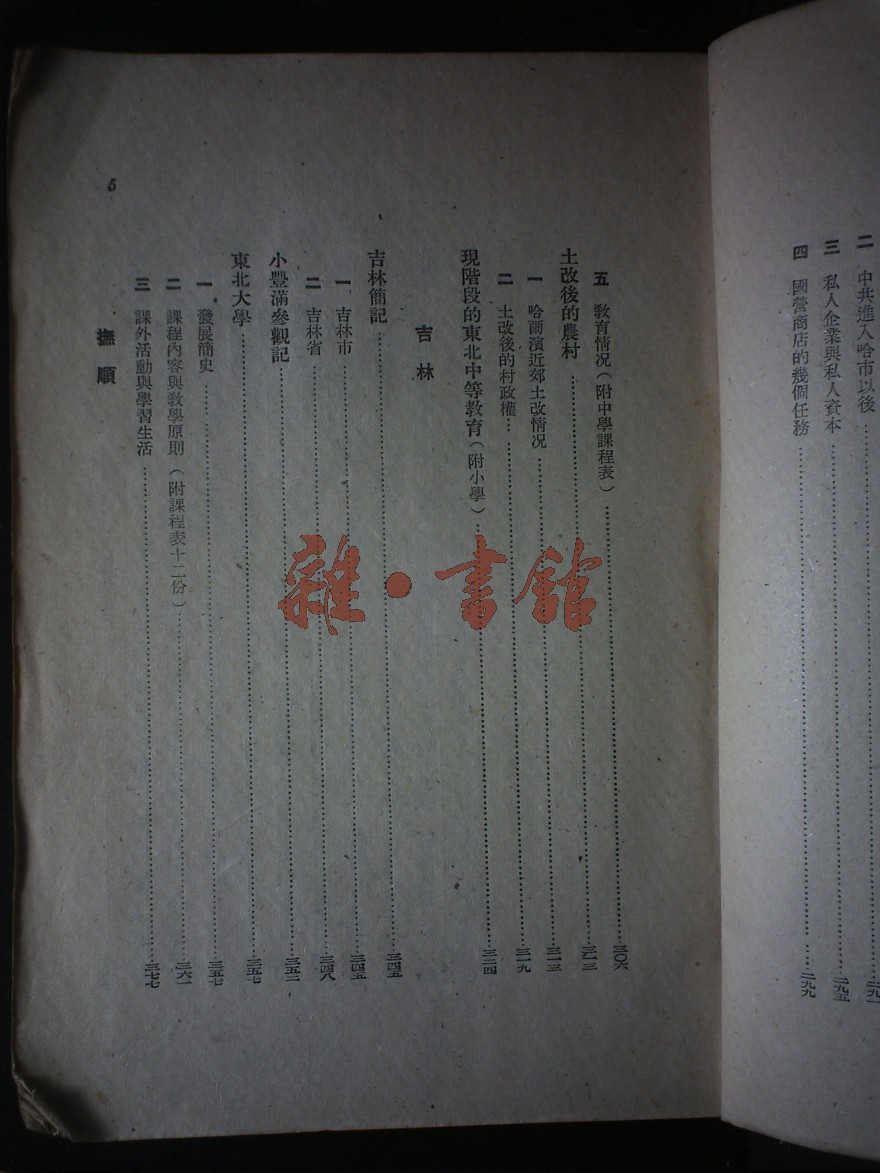 二 中共進入哈市以後……二九一
三 私人企業與私人資本……二九五
四 國營商店的幾個任務……二九九
五 教育情況(附中學課程表)……三〇六
土改後的農村……三一三
一 哈爾濱近郊土改情況……三一三
二 土改後的村政權……三一九
現階段的東北中等教育(附小學)……三二四
吉林
吉林簡記……三四五
一 吉林市……三四五
二 吉林省……三四八
小豐滿參觀記……三五二
東北大學……三五七
一 發展簡史……三五七
二 課程內容與教學原則(附課程表十二份)……三六一
三 課外活動與學習生活……三七七
撫順
5
雜·書館